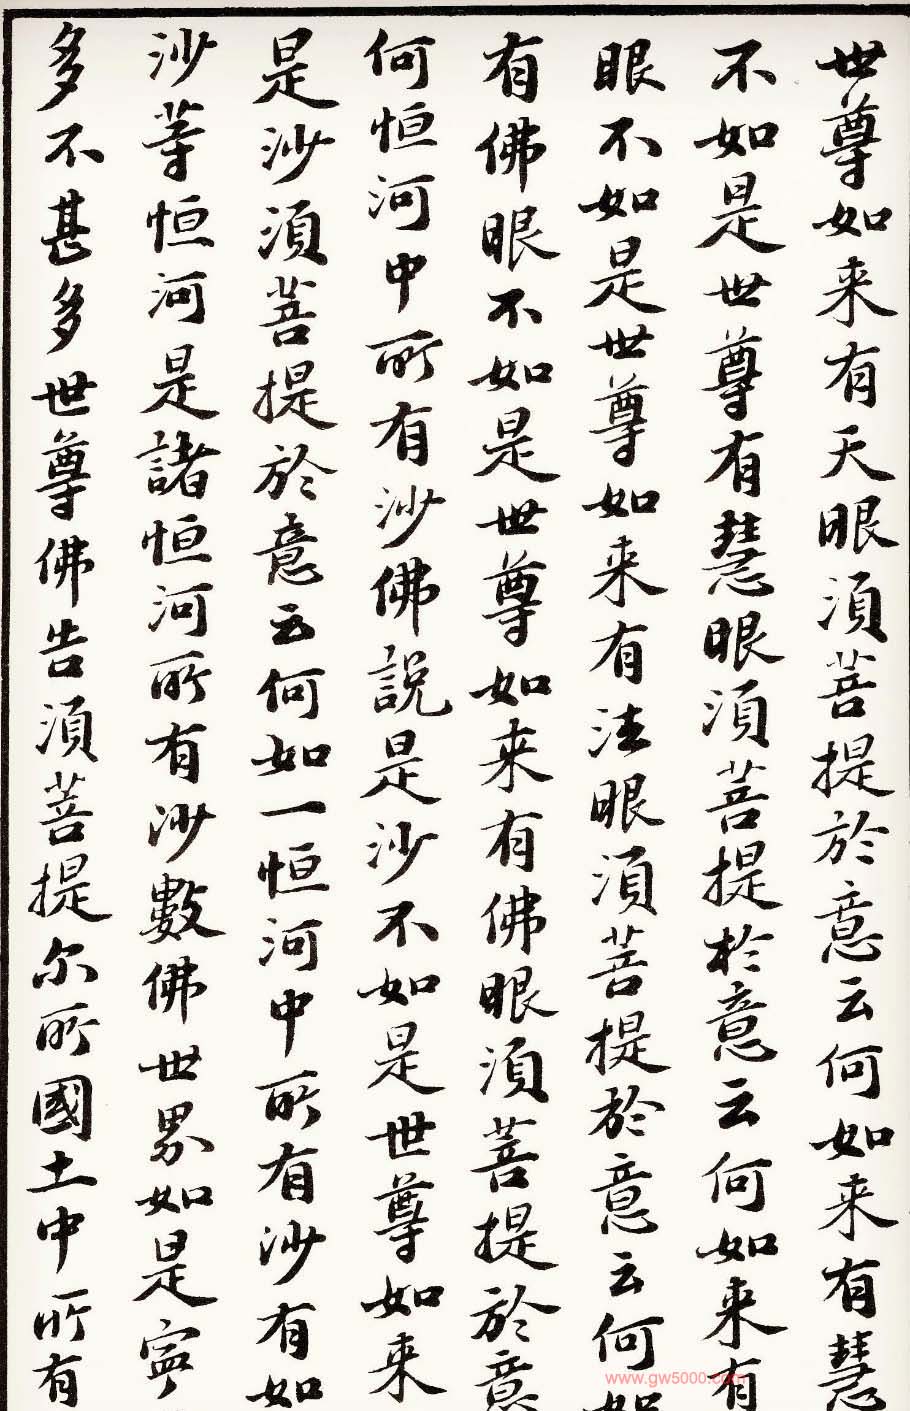 世尊如来有天眼須菩提於意云何如来有慧
不如是世尊有慧眼須菩提於意云何如来有
眼不如是世尊如来有法眼須菩提於意云何如
有佛眼不如是世尊如来有佛眼須菩提於意
何恒河中所有沙佛說是沙不如是世尊如来
是沙須菩提於意云何如一恒河中所有沙有如
沙等恒河是諸恒河所有沙數佛世界如是寧
多不甚多世尊佛告須菩提尔所國土中所有
www.gw5000.com